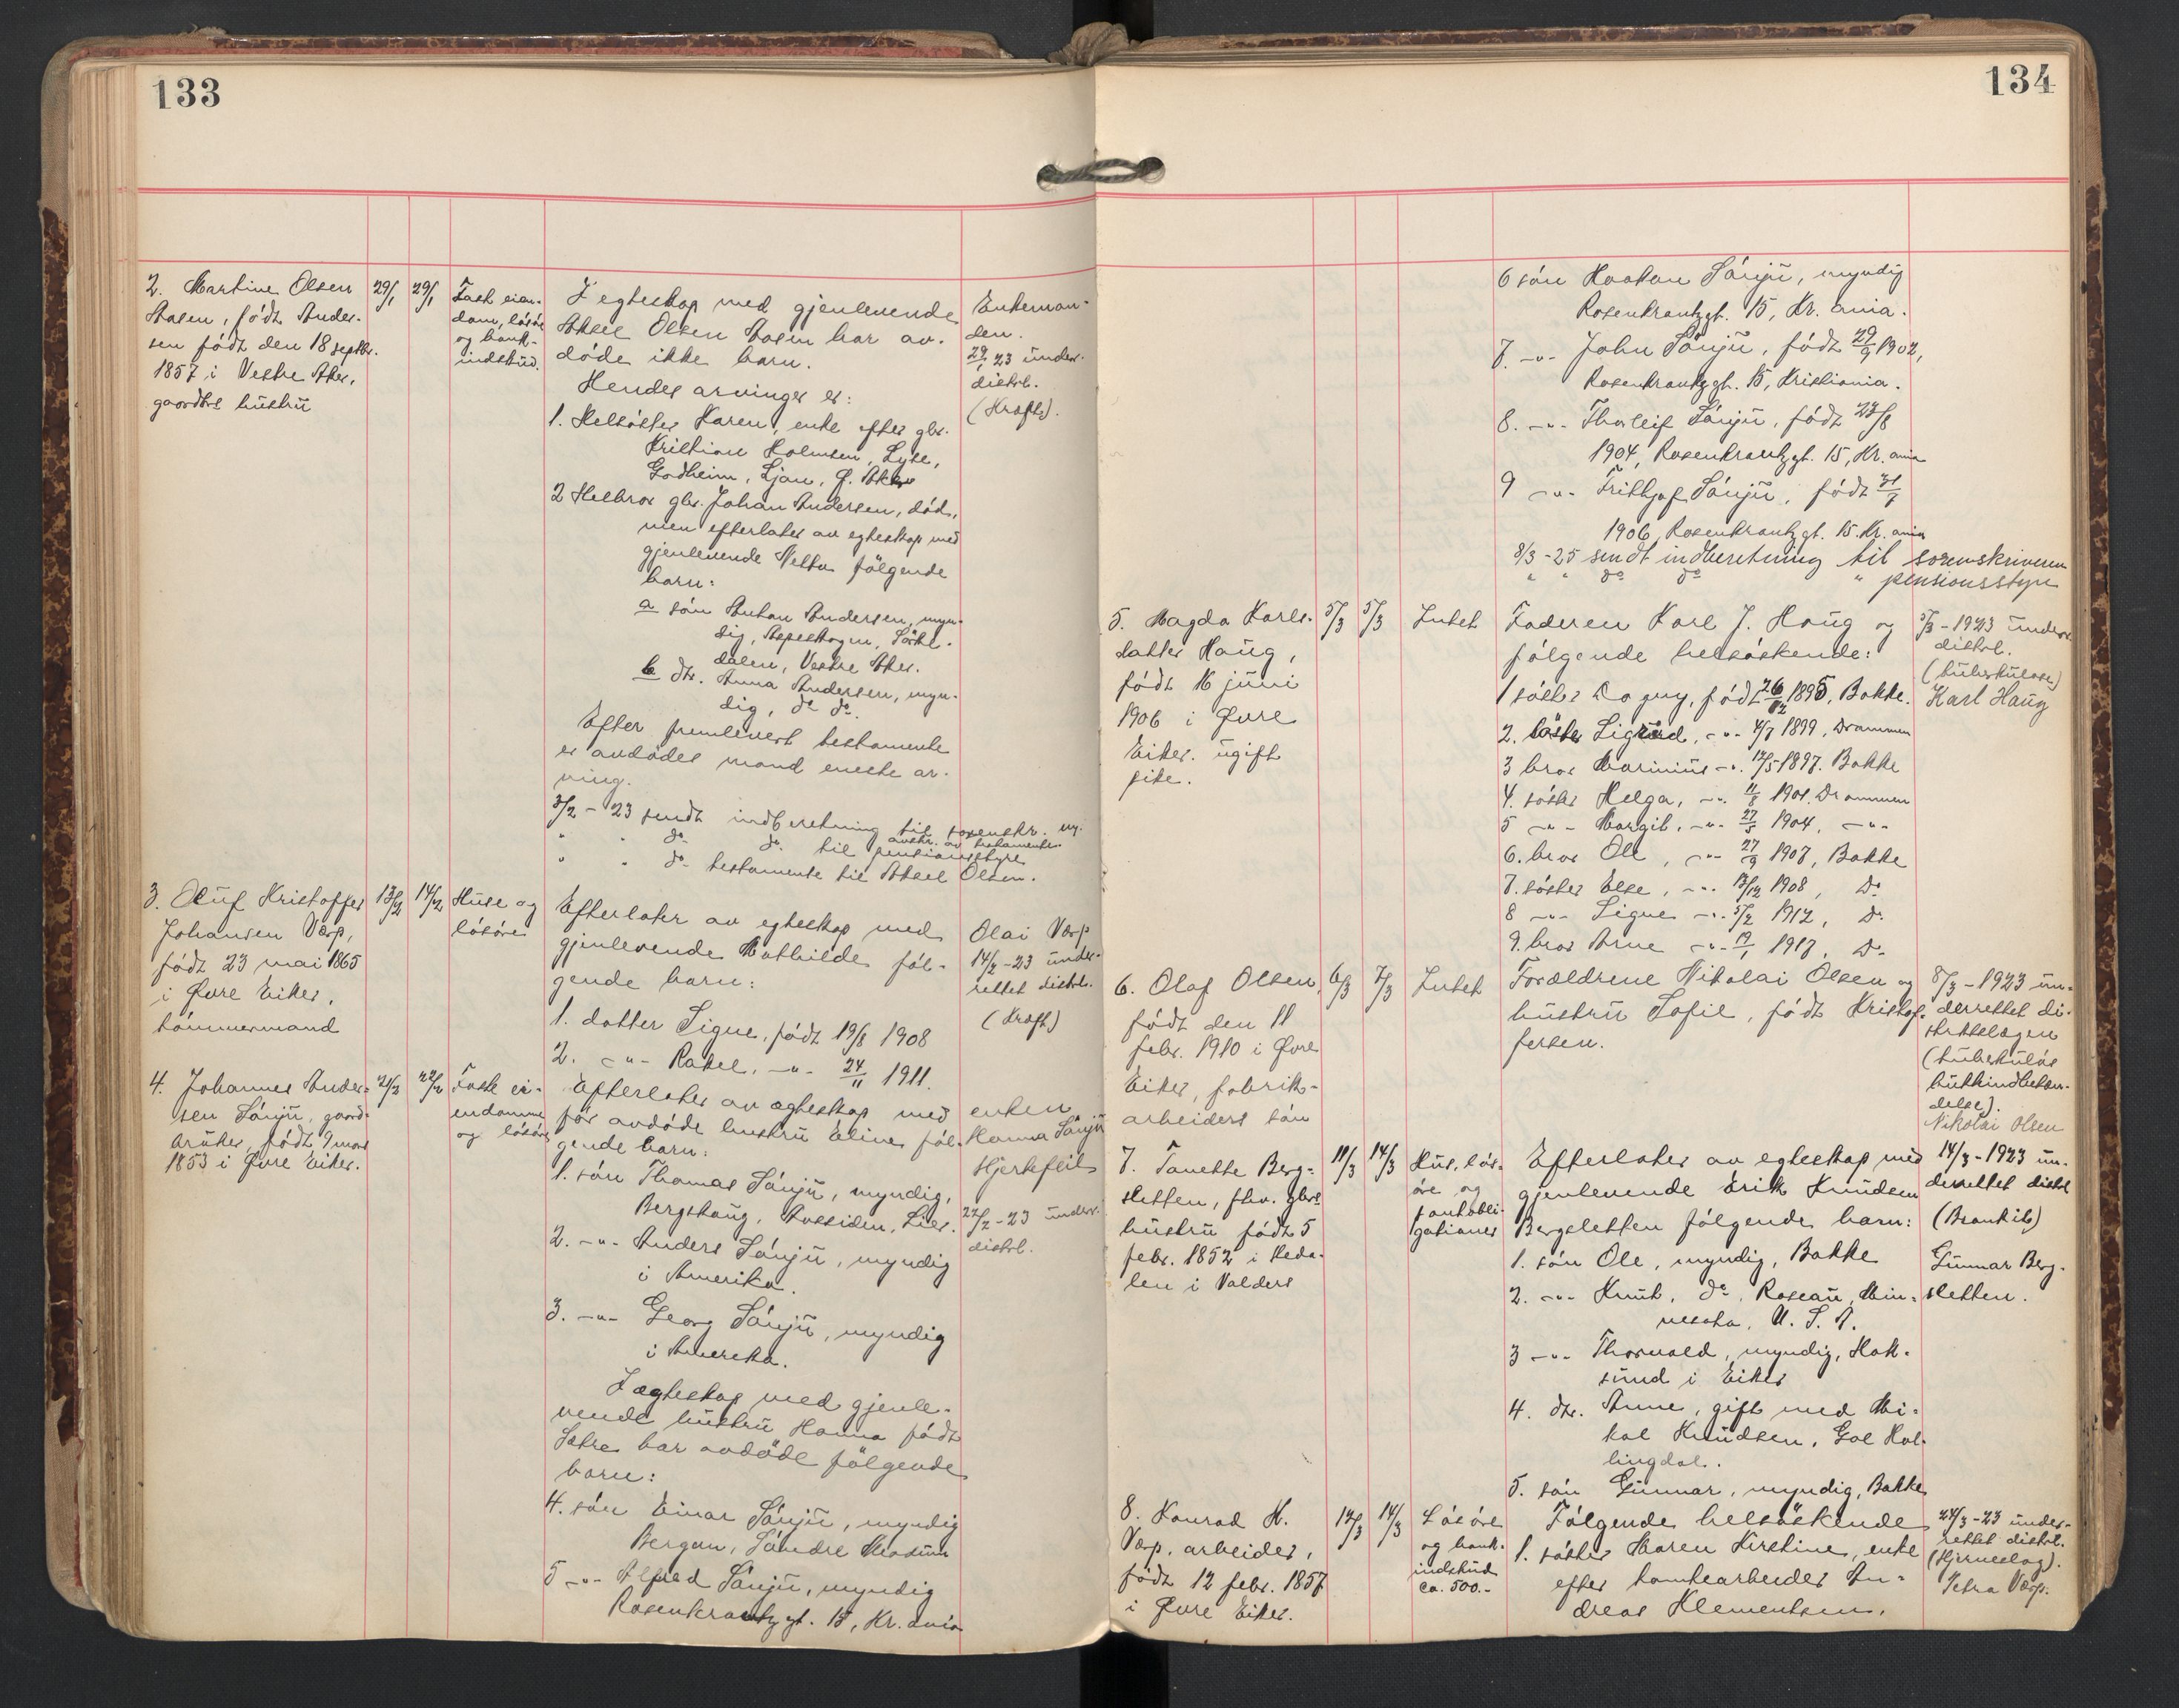 133
2. Martine Olsen
Aasen, född Ander-
sen född den 18 septbr.
1857 i Vestre Aker,
gaardbrs hustru
29/1 29/1
Fast eien-
dom, lösöre
og bank-
indskud.
I egteskap med gjenlevende
Aksel Olsen Aasen har av-
döde ikke barn.
Hendes arvinger er:
1. Helsöster Karen, enke efter gbr.
Kristian Holmsen, Lyse,
Godheim, Ljan, Ø. Aker
2 Helbror gbr. Johan Andersen, död,
men efterlater av egteskap med
gjenlevende Netta følgende
barn:
a sön Anton Andersen, myn-
dig, Aspeskogen, Sörke-
dalen, Vestre Aker.
b dtr. Anna Andersen, myn-
dig, do do.
Efter fremlevert testamente
er avdödes mand eneste ar-
ving.
3/2 - 23 sendt indberetning til sorenskr. m.
avskr. av testamente.
" " do do til pensionsstyre
" " do testamente til Aksel Olsen.
Enkeman-
den.
29/1 23 under.
distrl.
(Kræft).
3. Oluf Kristoffer
Johansen Værp,
født 23 mai 1865
i Øvre Eiker,
tömmermand
13/2 14/2
Huse og
lösöre
Efterlater av egteskap med
gjenlevende Mathilde föl-
gende barn:
1. datter Signe, född 19/8 1908
2. -"- Rakel, -"- 24/11 1911.
Olai Værp
14/2 - 23 under-
rettet distrl.
(Kræft)
4. Johannes Ander-
sen Sönju, gaard-
bruker, född 9 mars
1853 i Øvre Eiker.
21/2 22/2
Fast ei-
endomme
og lösöre
Efterlater av ægteskap med
för avdöde hustru Eline föl-
gende barn:
1. sön Thomas Sönju, myndig,
Bergskaug, Aassiden, Lier.
2. -"- Anders Sönju, myndig
i Amerika.
3. -"- Georg Sönju, myndig
i Amerika.
I ægteskap med gjenle-
vende hustru Hanna född
Sætre har avdöde følgende
barn:
4. sön Einar Sönju, myndig
Bergan, Söndre Modum
5 -"- Alfred Sönju, myndig
Rosenkrantzgt. 15, Kr.ania
enken
Hanna Sönju
Hjertefeil
22/2 - 23 under.
distrl.
134
6 sön Haakon Sönju, myndig
Rosenkrantzgt. 15, Kr. ania.
7. -"- John Sönju, född 29/9 1902,
Rosenkrantzgt. 15, Kristiania.
8. -"- Thorleif Sönju, född 23/8
1904, Rosenkrantzgt. 15, Kr. ania
9 -"- Fritjof Sönju, född 31/7
1906 Rosenkrantzgt. 15. Kr. ania
8/3 - 25 sendt indberetning til sorenskriveren
" " do do " pensionsstyre
5. Magda Karls-
datter Haug,
född 16 juni
1906 i Øvre
Eiker. ugift
pike.
5/3 5/3
Intet
Faderen Karl J. Haug og
følgende helsöskende:
1 söster Dagny, född 26/12 1895, Bakke.
2. söster Sigurd, -"- 4/7 1899, Drammen
3 bror Marinius -"- 12/5 1897. Bakke
4. söster Helga, -"- 11/8 1901. Drammen
5 -"- Margit, -"- 27/5 1904, -"-
6. bror Ole, -"- 27/9 1907, Bakke
7. söster Else, -"- 13/12 1908, Do
8 -"- Signe -"- 5/2 1912, Do
9. bror Arne -"- 19/1 1917, Do
5/3 - 1923 underr.
distrl.
(tuberkulose)
Karl Haug
6. Olaf Olsen,
född den 11
febr. 1910 i Øvre
Eiker, fabrik-
arbeiders sön
6/3 7/3
Intet
Forældrene Nikolai Olsen og
hustru Sofie, född Kristof-
fersen.
8/3 - 1923 un-
derrettet di-
striktslægen
(tuberkulös
Nikolai Olsen
7. Tanette Berg-
sletten, fhv. gbrs
hustru född 5
febr. 1852 i Heda-
len i Valders
11/3 14/3
Hus, lös-
öre og
pantobli-
gationer
Efterlater av egteskap med
gjenlevende Erik Knudsen
Bergsletten følgende barn:
1. sön Ole, myndig, Bakke
2. -"- Knut, do, Roseau, Min-
nesota, U. S. A.
3 -"- Thorvald, myndig, Hok-
sund i Eiker
4. dtr. Anne, gift med Mi-
kal Knudsen, Gol Hal-
lingdal.
5. sön Gunnar, myndig, Bakke
14/3 - 1923 un-
derrettet distrl
(Bronkit)
Gunnar Berg-
sletten.
8. Konrad H.
Værp, arbeider,
född 12 febr. 1857
i Øvre Eiker.
12/3 14/3
Lösöre
og bank-
indskud
ca. 500.-
Følgende helsöskende
1. söster Maren Kirstine, enke
efter tomtearbeider An-
dreas Klementsen.
24/3 - 23 under-
rettet distrl.
(Hjerneslag).
Petra Værp.